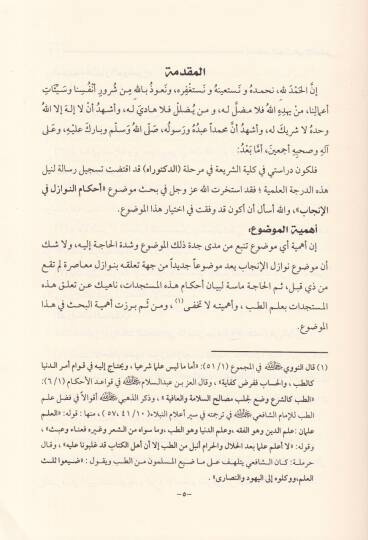 المقدمة
إنَّ الحَمْدَ لله، نحمـده ونَستعينه و نَستغفِره، ونَعـوذُ بـاللهِ مِن شُرورِ أنْفُسِـنا وسَيِّئاتِ
أعمالِنا، منْ يهدِهِ اللهُ فلا مضلَّ له، و مـن يُضللْ فـلا هـاديَ لـه، وأشـهدُ أنْ لا إلـهَ إلا اللهُ
وحدهُ لا شريكَ له، وأشهدُ أنَّ محمداً عبدُهُ ورَسولُه، صَلَّى اللهُ وسَلَّم وبـارَكَ عليْـهِ، وعـلى
آلهِ وصحبِهِ أجمعينَ، أمَّا بَعْدُ:
فلكون دراستي في كلية الشريعة في مرحلة (الدكتوراه) قد اقتضت تسجيل رسالة لنيل
هذه الدرجة العلمية ؛ فقد استخرت الله عز وجل في بحث موضوع «أحكام النوازل في
الإنجاب»، والله أسأل أن أكون قد وفقت في اختيار هذا الموضوع.
أهمية الموضوع:
إن أهمية أي موضوع تنبع من مدى جدة ذلك الموضوع وشدة الحاجة إليه، ولا شـك
أن موضوع نوازل الإنجاب يعد موضوعاً جديداً من جهة تعلقه بنوازل معاصرة لم تقـع
من ذي قبل، ثم الحاجة ماسة لبيان أحكام هذه المستجدات، ناهيـك عـن تعلـق هـذه
المستجدات بعلـم الطـب ، وأهميتـه لا تخفـى(١) ، ومن ثَـم برزت أهمية البحث في هذا
الموضوع.
(١) قال النووي ﷺ في المجموع (٥١/١): «أمـا مـا ليس علمـا شرعيـا ، ويحتـاج إليـه في قـوام أمـر الـدنيا
كالطب ، والحساب ففرض كفاية» ، وقال العز بن عبدالسلام ﷺ في قواعـد الأحكـام (٦/١):
«الطب كالشرع وضع لجلب مصالح السلامة والعافية» ، وذكر الذهبي ﷺ أقوالاً في فضل علـم
الطب للإمام الشافعي ﷺ في ترجمته في سير أعلام النبلاء (٥٧،٤١/١٠) ، منها : قوله: «العلـم
علمان : علم الدين وهو الفقه ، وعلم الدنيا وهو الطب ،وما سواه من الشعر وغيره فعناء وعبـث» ،
وقوله: «لا أعلم علما بعد الحلال والحرام أنبل من الطب إلا أن أهل الكتاب قد غلبونا عليه» ، وقال
حرملة: كـان الشـافعي يتلهـف عـلى مـا ضيع المسلمون مـن الطـب ويقـول : «ضـيعوا ثلـث
العلم،ووكلوه إلى اليهود والنصارى» .
-٥-